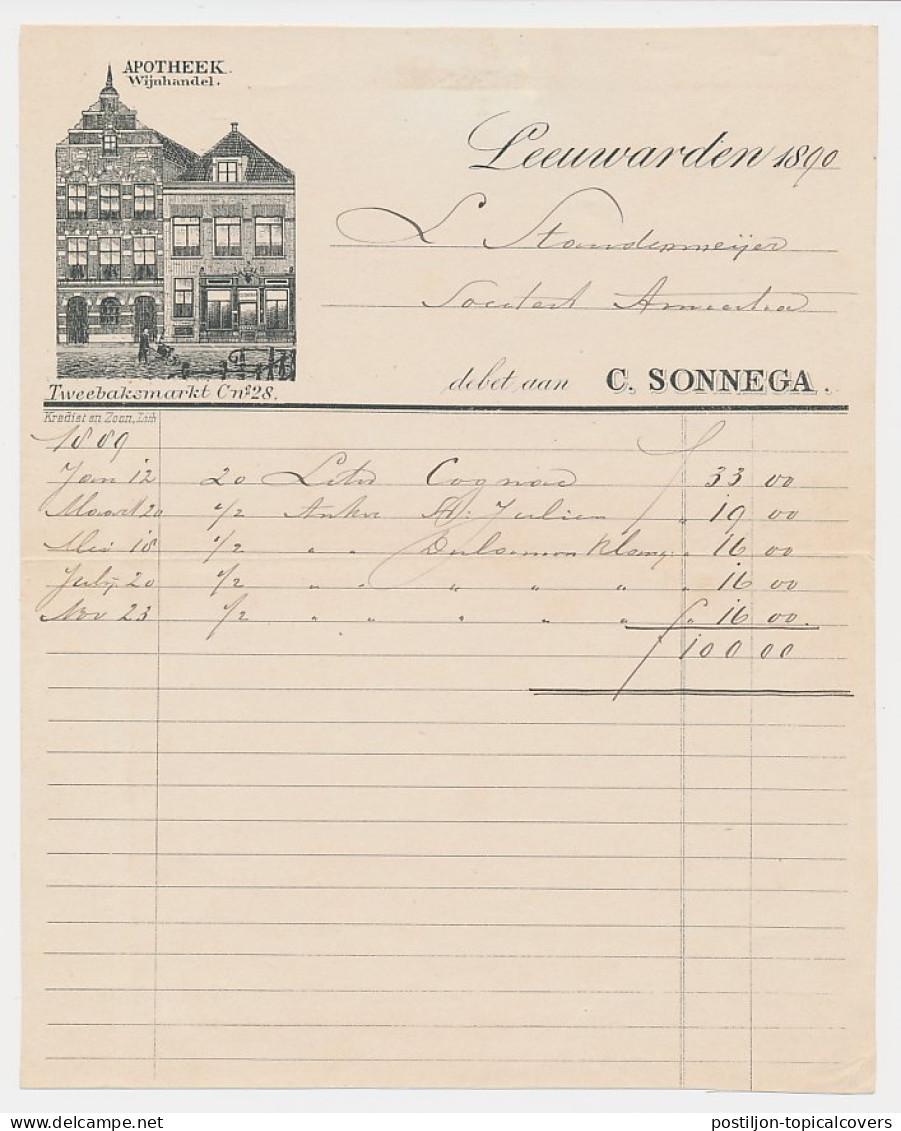 APOTHEEK.
Wijnhandel.
Leeuwarden 1890
L
Tweebaksmarkt C nº 28.
debet aan C. SONNEGA.
Krediet en Zoon, Lith
1889
Jan 12 20 Liter Cognac ƒ 33 00
Maart 20 1/2 Anker St: Julien " 19 00
Mei 18 1/2 " " " 16 00
July 20 1/2 " " " " " " 16 00
Nov 23 1/2 " " " " " " 16 00.
ƒ 100 00
postiljon-topicalcovers